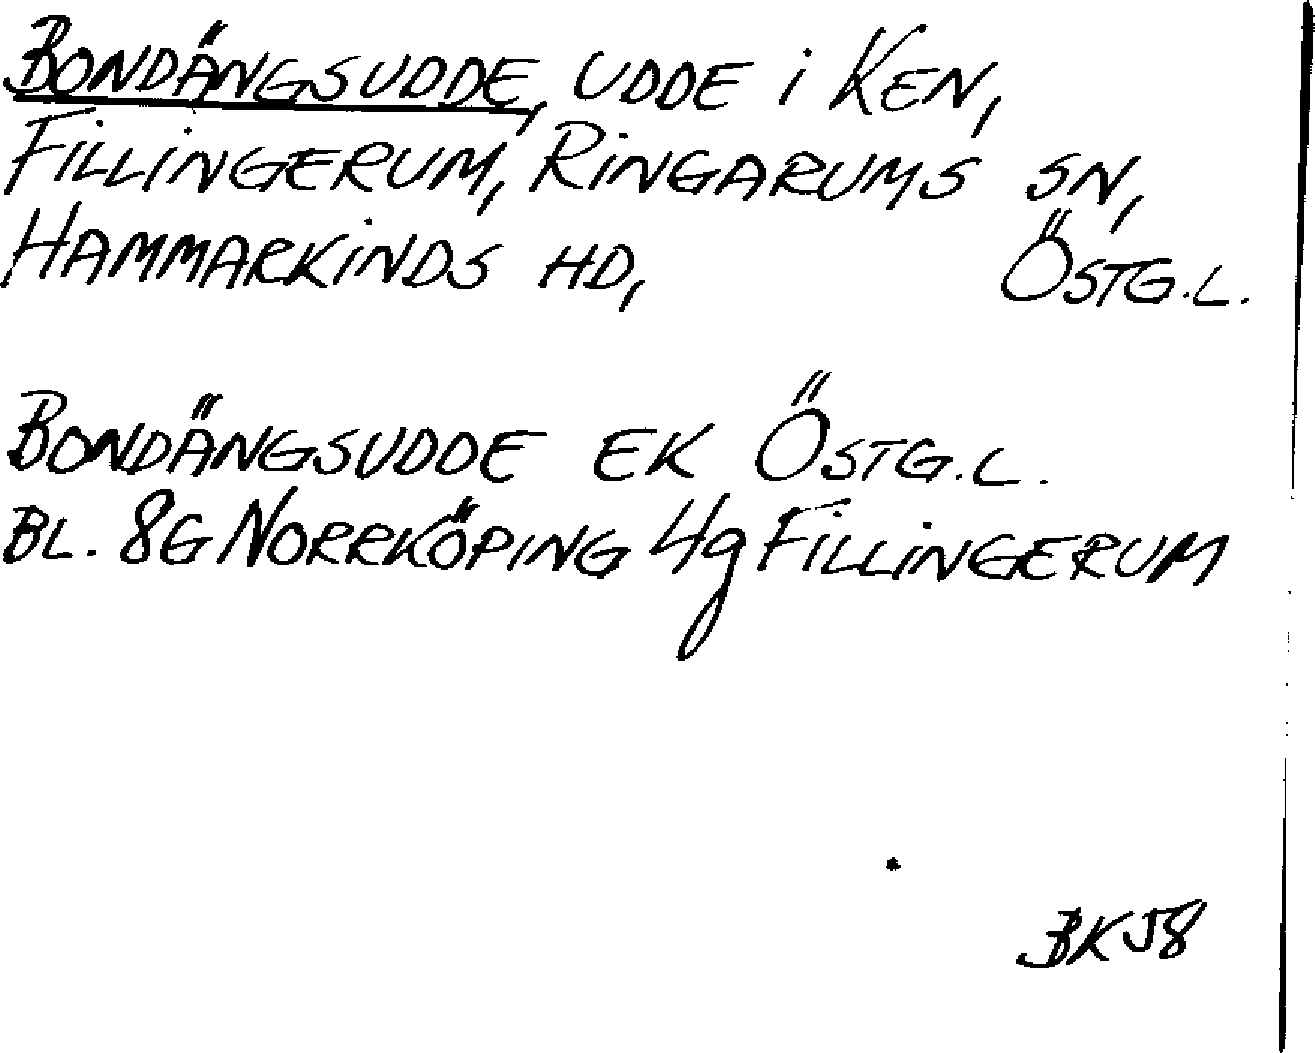 BONDÄNGSUDDE, UDDE i KEN,
FILLINGERUM, RINGARUMS SN,
HAMMARKINDS HD, ÖSTG.L.
BONDÄNGSUDDE EK ÖSTG.L.
BL. 8G NORRKÖPING 4g FILLINGERUM
BK58